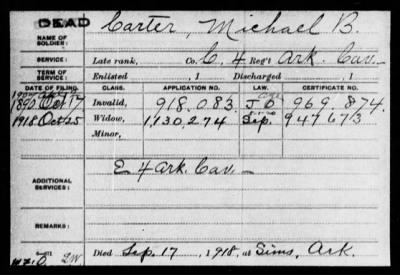 DEAD
Carter, Michael B.
NAME OF SOLDIER:
SERVICE: Late rank, Co. C, 4 Reg't Ark. Cav.
TERM OF SERVICE: Enlisted , 1 Discharged , 1
DATE OF FILING. CLASS. APPLICATION NO. LAW. CERTIFICATE NO.
1890 Oct 17 Invalid, 918.083 J D 969.874.
1918 Oct 25 Widow, 1,130,274 Sep. 947673
Minor,
E 4 Ark. Cav.
ADDITIONAL SERVICES:
REMARKS:
Died Sep. 17, 1918, at Sims, Ark.